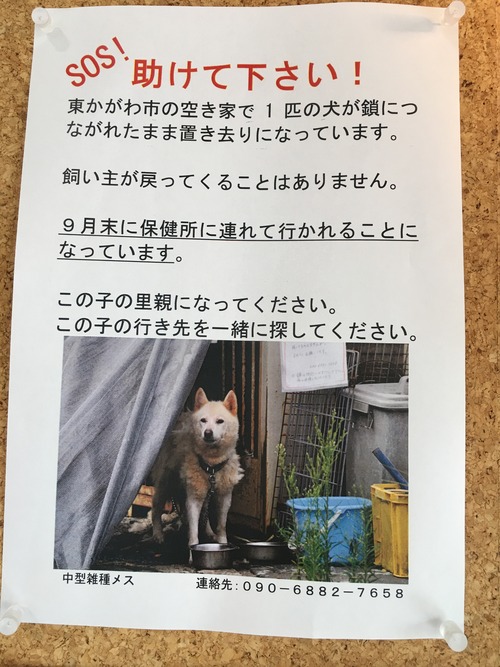 SOS!
助けて下さい！
東かがわ市の空き家で 1 匹の犬が鎖につ
ながれたまま置き去りになっています。
飼い主が戻ってくることはありません。
９月末に保健所に連れて行かれることに
なっています。
この子の里親になってください。
この子の行き先を一緒に探してください。
中型雑種メス
連絡先：０９０－６８８２－７６５８